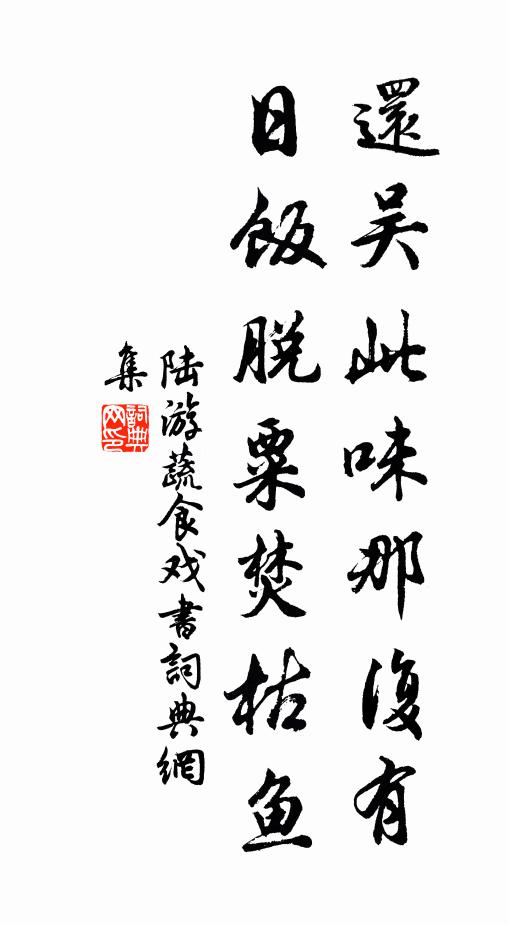 還吴此味那復有
日飯脱粟焚枯鱼
陆游蔬食戏書詞典網
集
詞典
网印